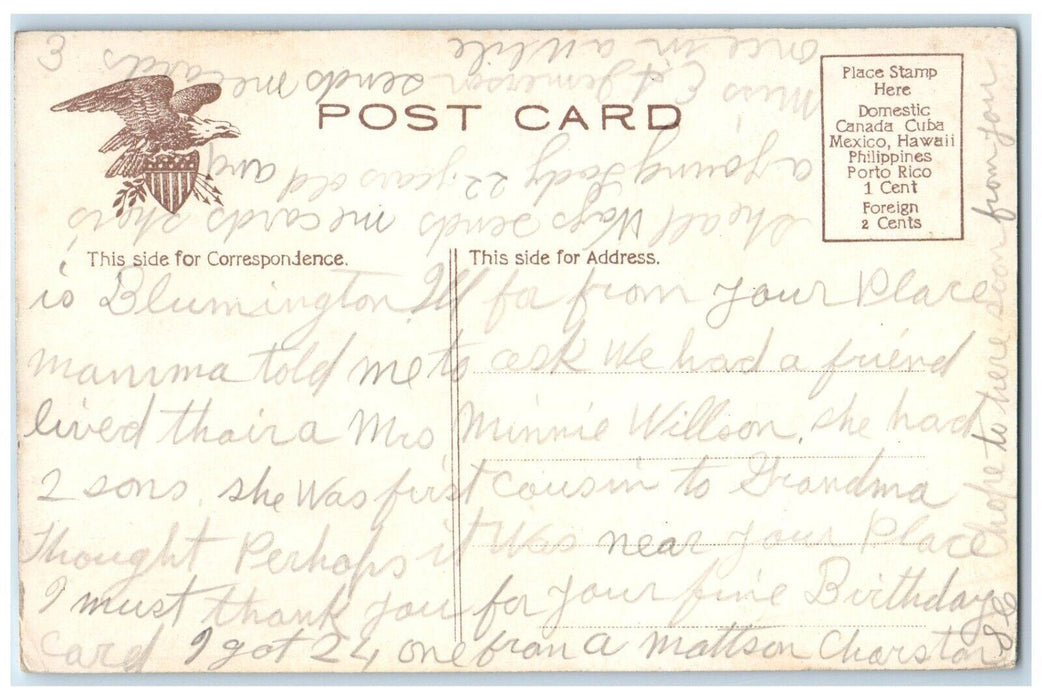 3
POST CARD
Place Stamp
Here
Domestic
Canada Cuba
Mexico, Hawaii
Philippines
Porto Rico
1 Cent
Foreign
2 Cents
This side for Correspondence.
This side for Address.
is Blumington Ill far from your Place
mamma told me to ask We had a friend
lived thair a Mrs Minnie Willson, she had
2 sons. she Was first cousin to Grandma
Thought Perhaps it Was near your Place
I must thank you for your fine Birthday
Card I got 24 one from a Mattson Charston
hope to here soon from you
she all Ways sends me cards
a young Lady 22 years old and
Miss E A Jemerson sends me cards
once in a While